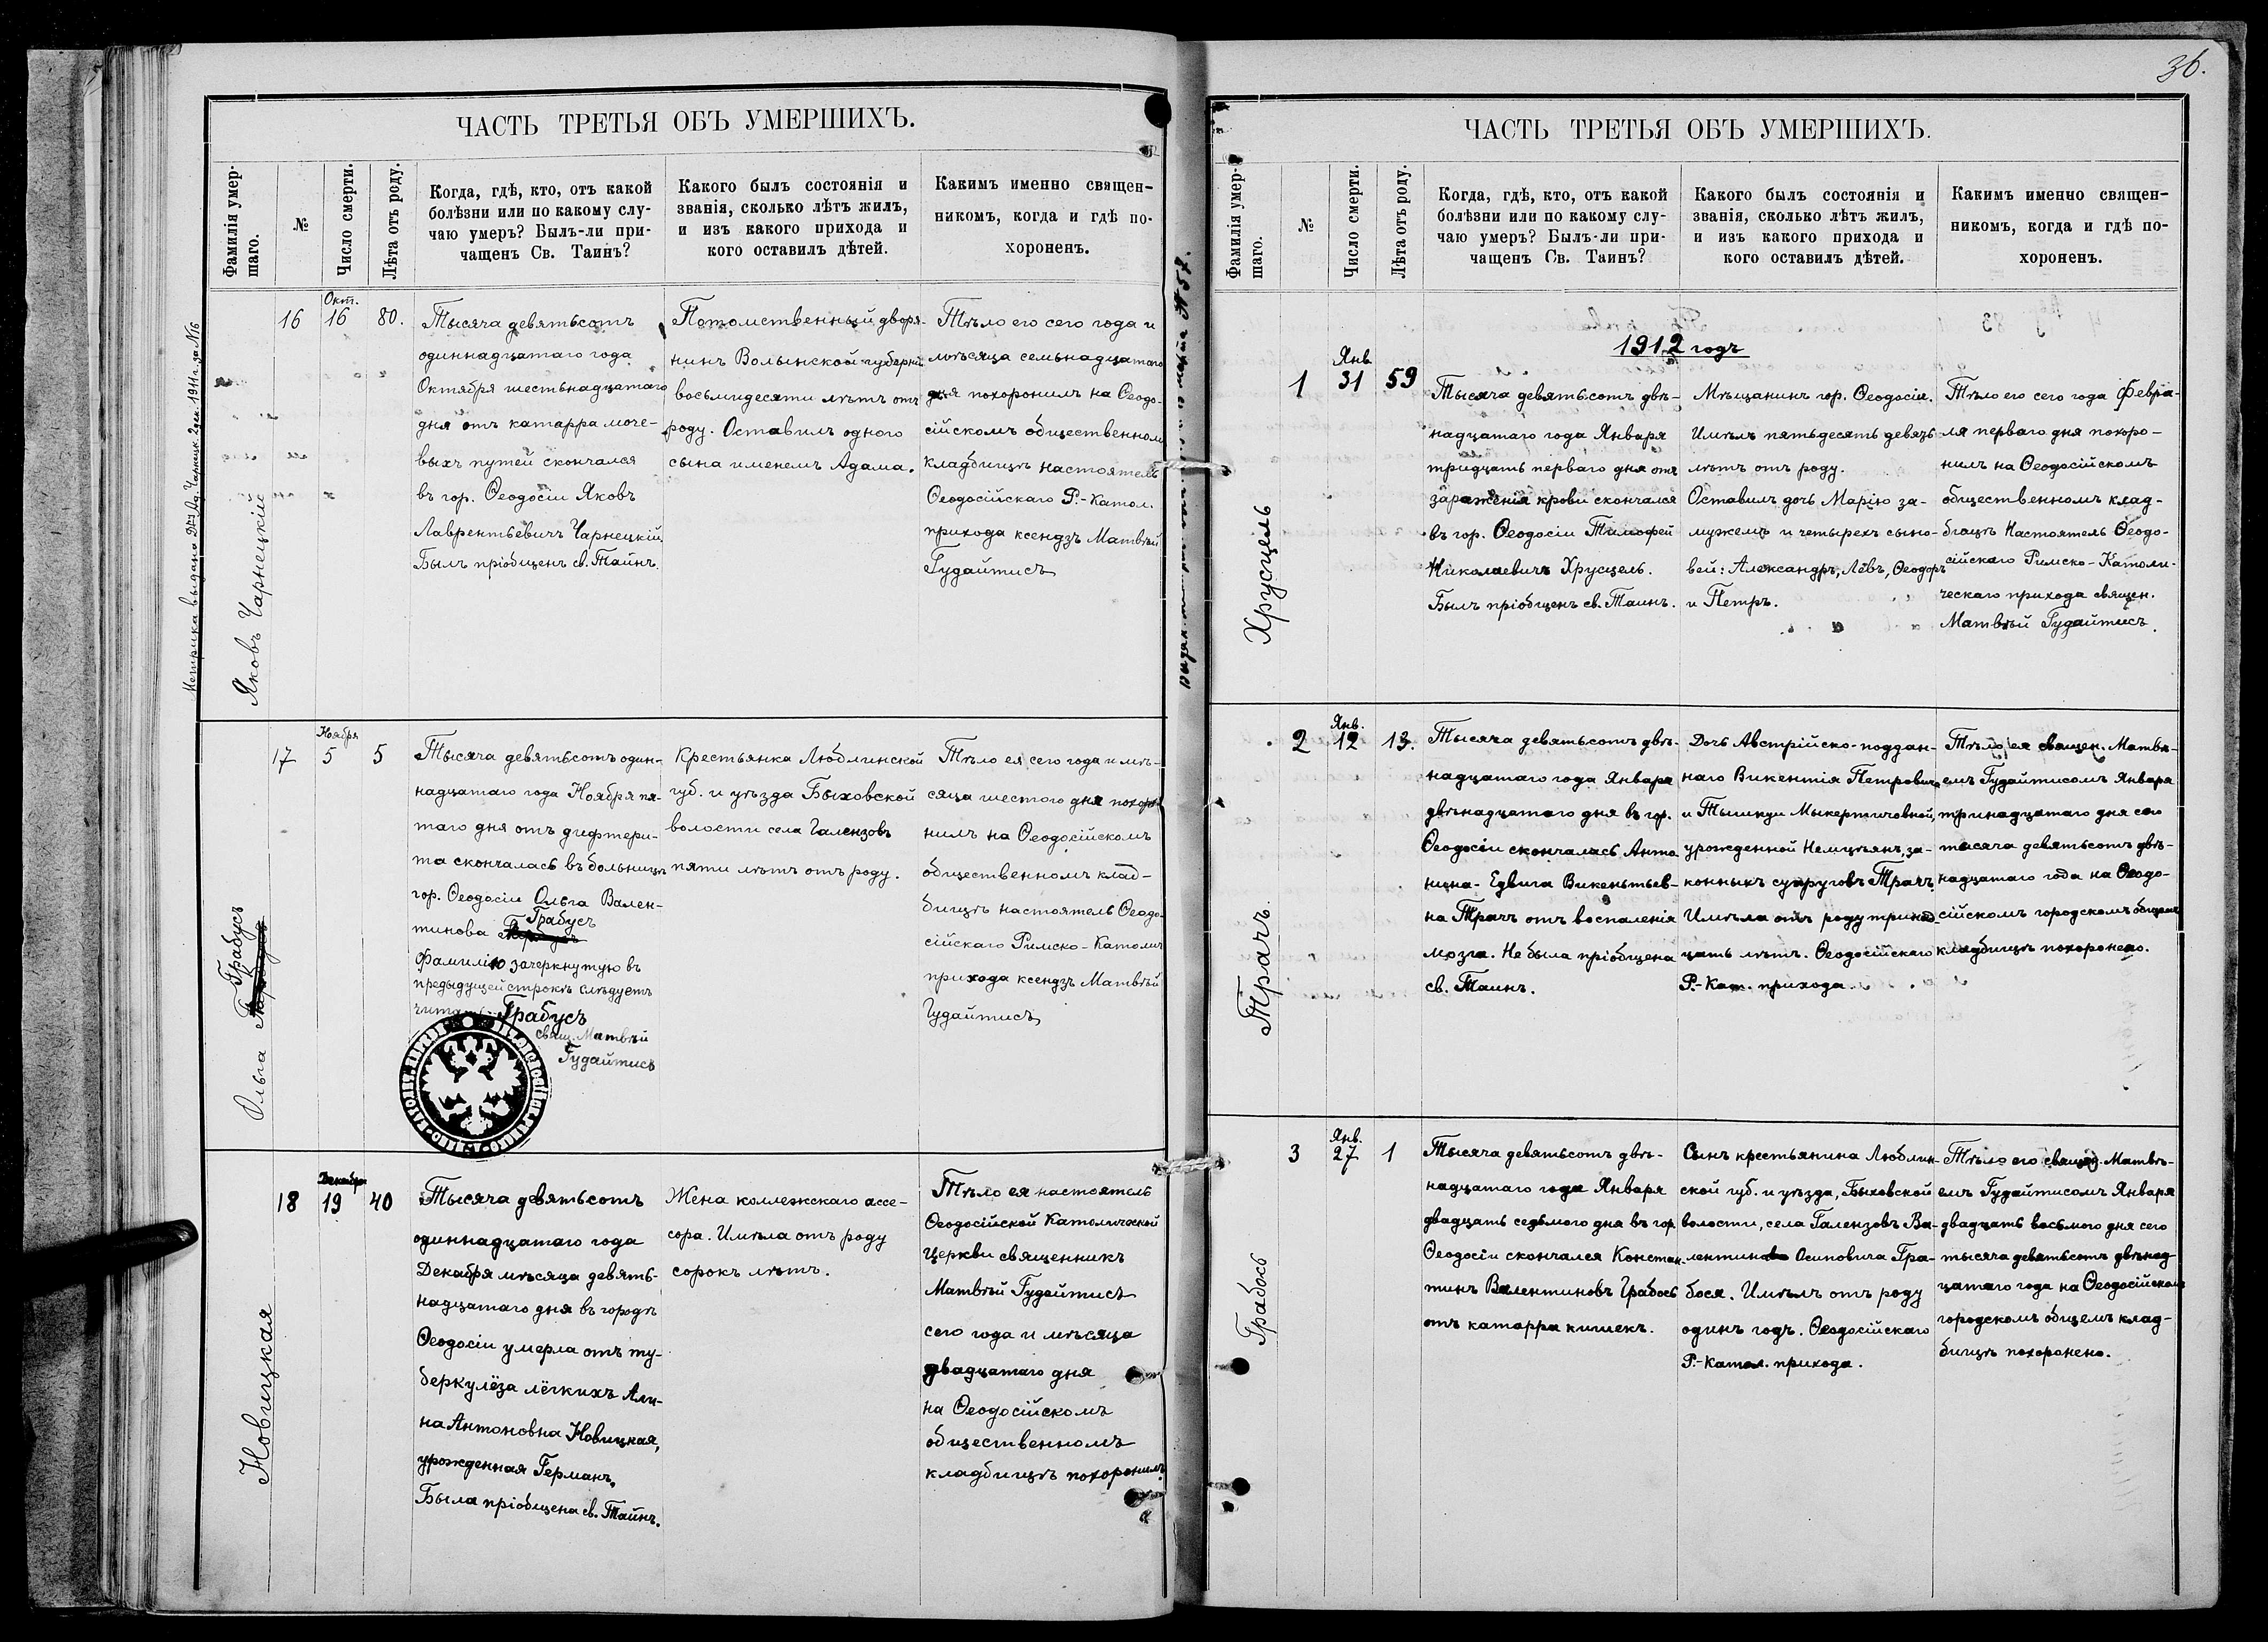 ЧАСТЬ ТРЕТЬЯ ОБЪ УМЕРШИХЪ.
Фамилія умер-
шаго.
№
Число смерти.
Лѣта отъ роду.
Когда, гдѣ, кто, отъ какой
болѣзни или по какому слу-
чаю умеръ? Былъ-ли при-
чащенъ Св. Таинъ?
Какого былъ состоянія и
званія, сколько лѣтъ жилъ,
и изъ какого прихода и
кого оставилъ дѣтей.
Какимъ именно священ-
никомъ, когда и гдѣ по-
хороненъ.
Метрика выдана Ад. Чарнецк. 2 дек. 1911 г. за №16
Яковъ Чарнецкій
16
Окт.
16
80.
Тысяча девятьсотъ
одиннадцатаго года
Октября шестьнадцатаго
дня отъ катарра моче-
выхъ путей скончался
въ гор. Ѳеодосіи Яковъ
Лаврентьевичъ Чарнецкій.
Былъ пріобщенъ св. Тайнъ.
Потомственный дворя-
нинъ Волынской губерніи
восьмидесяти лѣтъ отъ
роду. Оставилъ одного
сына именемъ Адама.
Тѣло его сего года и
мѣсяца семьнадцатаго
дня похоронилъ на Ѳеодо-
сійскомъ общественномъ
кладбищѣ настоятель
Ѳеодосійскаго Р.-Катол.
прихода ксендзъ Матвѣй
Гудайтисъ
Ольга Грабусъ
17
Ноября
5
5
Тысяча девятьсотъ один-
надцатаго года Ноября пя-
таго дня отъ дифтери-
та скончалась въ больницѣ
гор. Ѳеодосіи Ольга Вален-
тинова Грабусъ
Фамилію зачеркнутую въ
предыдущей строкѣ слѣдуетъ
читать Грабусъ
свящ. Матвѣй
Гудайтисъ
Крестьянка Люблинской
губ. и уѣзда Быховской
волости села Галензовъ
пяти лѣтъ отъ роду.
Тѣло ея сего года и мѣ-
сяца шестого дня похоро-
нилъ на Ѳеодосійскомъ
общественномъ клад-
бищѣ настоятель Ѳеодо-
сійскаго Римско-Католич
прихода ксендзъ Матвѣй
Гудайтисъ
Новицкая
18
Декабря
19
40
Тысяча девятьсотъ
одиннадцатаго года
Декабря мѣсяца девять-
надцатаго дня въ городѣ
Ѳеодосіи умерла отъ ту-
беркулёза лёгкихъ Али-
на Антоновна Новицкая,
урожденная Германъ.
Была пріобщена св. Тайнъ.
Жена коллежскаго ассе-
сора. Имѣла отъ роду
сорокъ лѣтъ.
Тѣло ея настоятель
Ѳеодосійской Католической
Церкви священникъ
Матвѣй Гудайтисъ
сего года и мѣсяца
двадцатаго дня
на Ѳеодосійскомъ
общественномъ
кладбищѣ похоронилъ.
36.
ЧАСТЬ ТРЕТЬЯ ОБЪ УМЕРШИХЪ.
Фамилія умер-
шаго.
№
Число смерти.
Лѣта отъ роду.
Когда, гдѣ, кто, отъ какой
болѣзни или по какому слу-
чаю умеръ? Былъ-ли при-
чащенъ Св. Таинъ?
Какого былъ состоянія и
званія, сколько лѣтъ жилъ,
и изъ какого прихода и
кого оставилъ дѣтей.
Какимъ именно священ-
никомъ, когда и гдѣ по-
хороненъ.
1912 годъ
Хрусцель
1
Янв.
31
59
Тысяча девятьсотъ двѣ-
надцатаго года Января
тридцать перваго дня отъ
зараженія крови скончался
въ гор. Ѳеодосіи Тимофей
Николаевичъ Хрусцель.
Былъ пріобщенъ св. Таинъ.
Мѣщанинъ гор. Ѳеодосіи.
Имѣлъ пятьдесятъ девять
лѣтъ отъ роду.
Оставилъ дочь Марію за-
мужемъ и четырехъ сыно-
вей: Александръ, Левъ, Ѳеодоръ
и Петръ.
Тѣло его сего года Февра-
ля перваго дня похоро-
нилъ на Ѳеодосійскомъ
общественномъ клад-
бищѣ Настоятель Ѳеодо-
сійскаго Римско-Католи-
ческаго прихода священ.
Матвѣй Гудайтисъ.
Трачъ
2
Янв.
12
13.
Тысяча девятьсотъ двѣ-
надцатаго года Января
двѣнадцатаго дня въ гор.
Ѳеодосіи скончалась Анто
нина-Едвига Викентьев-
на Трачъ отъ воспаленія
мозга. Не была пріобщена
св. Таинъ.
Дочь Австрійско-поддан-
наго Викентія Петровича
и Тышкуи Мыкертичовной,
урожденной Немцѣянъ, за-
конныхъ супруговъ Трачъ.
Имѣла отъ роду тринад-
цать лѣтъ. Ѳеодосійскаго
Р.-Кат. прихода.
Тѣло ея священ. Матвѣ-
емъ Гудайтисомъ Января
тринадцатаго дня сего
тысяча девятьсотъ двѣ-
надцатаго года на Ѳеодо-
сійскомъ городскомъ общемъ
кладбищѣ похоронено.
Грабось
3
Янв.
27
1
Тысяча девятьсотъ двѣ-
надцатаго года Января
двадцать седьмого дня въ гор.
Ѳеодосіи скончался Констан-
тинъ Валентиновъ Грабось
отъ катарра кишекъ.
Сынъ крестьянина Люблин-
ской губ. и уѣзда, Быховской
волости, села Галензовъ Ва-
лентина Осиповича Гра-
бося. Имѣлъ отъ роду
одинъ годъ. Ѳеодосійскаго
Р.-Катол. прихода.
Тѣло его священ. Матвѣ-
емъ Гудайтисомъ Января
двадцать восьмого дня сего
тысяча девятьсотъ двѣнад-
цатаго года на Ѳеодосійскомъ
городскомъ общемъ клад-
бищѣ похоронено.